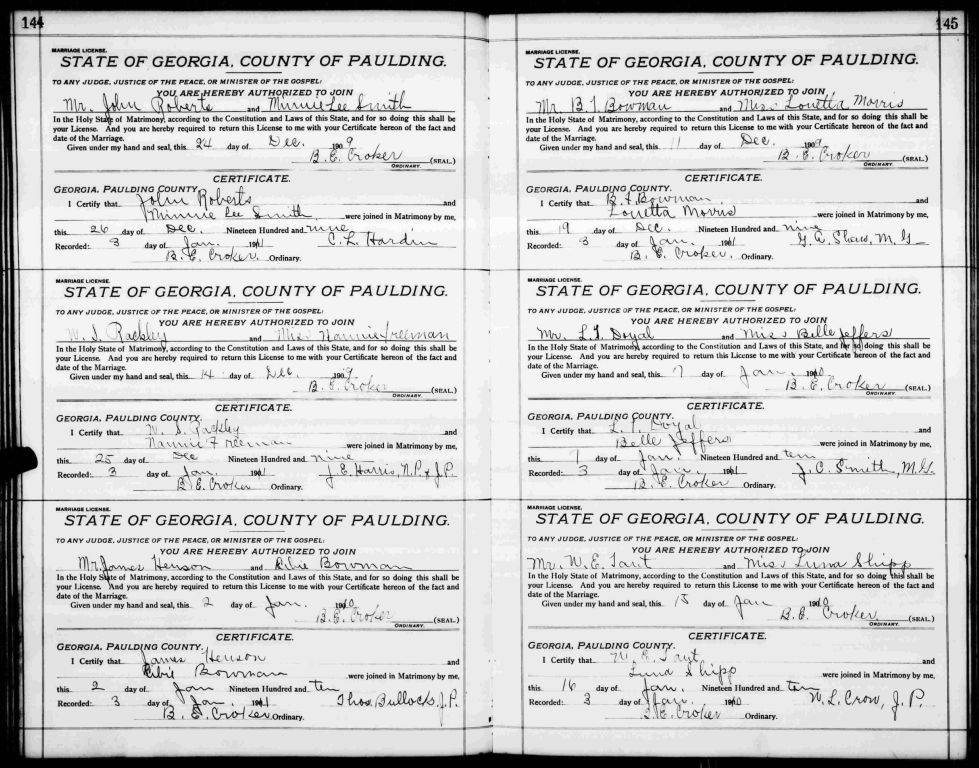 144
MARRIAGE LICENSE.
STATE OF GEORGIA, COUNTY OF PAULDING.
TO ANY JUDGE, JUSTICE OF THE PEACE, OR MINISTER OF THE GOSPEL:
YOU ARE HEREBY AUTHORIZED TO JOIN
Mr. John Roberts and Minnie Lee Smith
In the Holy State of Matrimony, according to the Constitution and Laws of this State, and for so doing this shall be
your License. And you are hereby required to return this License to me with your Certificate hereon of the fact and
date of the Marriage.
Given under my hand and seal, this 24 day of Dec. 1909
B. E. Croker (SEAL.)
ORDINARY.
CERTIFICATE.
GEORGIA, PAULDING COUNTY.
I Certify that John Roberts and
Minnie Lee Smith were joined in Matrimony by me,
this 26 day of Dec. Nineteen Hundred and nine
Recorded: 3 day of Jan. 1911 C. L. Hardin
B. E. Croker. Ordinary.
MARRIAGE LICENSE.
STATE OF GEORGIA, COUNTY OF PAULDING.
TO ANY JUDGE, JUSTICE OF THE PEACE, OR MINISTER OF THE GOSPEL:
YOU ARE HEREBY AUTHORIZED TO JOIN
W. S. Rackley and Miss Nannie Freeman
In the Holy State of Matrimony, according to the Constitution and Laws of this State, and for so doing this shall be
your License. And you are hereby required to return this License to me with your Certificate hereon of the fact and
date of the Marriage.
Given under my hand and seal, this 14 day of Dec. 1909.
B. E. Croker (SEAL.)
ORDINARY.
CERTIFICATE.
GEORGIA, PAULDING COUNTY.
I Certify that W. S. Rackley and
Nannie Freeman were joined in Matrimony by me,
this 25 day of Dec Nineteen Hundred and nine
Recorded: 3 day of Jan. 1911 J. E. Harris, N.P. & J.P.
B. E. Croker Ordinary.
MARRIAGE LICENSE.
STATE OF GEORGIA, COUNTY OF PAULDING.
TO ANY JUDGE, JUSTICE OF THE PEACE, OR MINISTER OF THE GOSPEL:
YOU ARE HEREBY AUTHORIZED TO JOIN
Mr. James Henson and Ribie Bowman
In the Holy State of Matrimony, according to the Constitution and Laws of this State, and for so doing this shall be
your License. And you are hereby required to return this License to me with your Certificate hereon of the fact and
date of the Marriage.
Given under my hand and seal, this 2 day of Jan. 1910
B. E. Croker (SEAL.)
ORDINARY.
CERTIFICATE.
GEORGIA, PAULDING COUNTY.
I Certify that James Henson and
Ribie Bowman were joined in Matrimony by me,
this 2 day of Jan Nineteen Hundred and ten
Recorded: 3 day of Jan. 1911 Thos. Bullock. J.P.
B. E. Croker Ordinary.
145
MARRIAGE LICENSE.
STATE OF GEORGIA, COUNTY OF PAULDING.
TO ANY JUDGE, JUSTICE OF THE PEACE, OR MINISTER OF THE GOSPEL:
YOU ARE HEREBY AUTHORIZED TO JOIN
Mr. B. F. Bowman and Miss Louetta Morris
In the Holy State of Matrimony, according to the Constitution and Laws of this State, and for so doing this shall be
your License. And you are hereby required to return this License to me with your Certificate hereon of the fact and
date of the Marriage.
Given under my hand and seal, this 11 day of Dec. 1909
B. E. Croker (SEAL.)
ORDINARY.
CERTIFICATE.
GEORGIA, PAULDING COUNTY.
I Certify that B. F. Bowman and
Louetta Morris were joined in Matrimony by me,
this 19 day of Dec. Nineteen Hundred and nine
Recorded: 3 day of Jan. 1911 G. A. Shaw, M.G.
B. E. Croker. Ordinary.
MARRIAGE LICENSE.
STATE OF GEORGIA, COUNTY OF PAULDING.
TO ANY JUDGE, JUSTICE OF THE PEACE, OR MINISTER OF THE GOSPEL:
YOU ARE HEREBY AUTHORIZED TO JOIN
Mr. L. T. Doyal and Miss Belle Jeffers
In the Holy State of Matrimony, according to the Constitution and Laws of this State, and for so doing this shall be
your License. And you are hereby required to return this License to me with your Certificate hereon of the fact and
date of the Marriage.
Given under my hand and seal, this 7 day of Jan. 1910
B. E. Croker (SEAL.)
ORDINARY.
CERTIFICATE.
GEORGIA, PAULDING COUNTY.
I Certify that L. T. Doyal and
Belle Jeffers were joined in Matrimony by me,
this 7 day of Jan. Nineteen Hundred and ten
Recorded: 3 day of Jan. 1911 J. C. Smith, M.G.
B. E. Croker Ordinary.
MARRIAGE LICENSE.
STATE OF GEORGIA, COUNTY OF PAULDING.
TO ANY JUDGE, JUSTICE OF THE PEACE, OR MINISTER OF THE GOSPEL:
YOU ARE HEREBY AUTHORIZED TO JOIN
Mr. W. E. Tant and Miss Luna Shipp
In the Holy State of Matrimony, according to the Constitution and Laws of this State, and for so doing this shall be
your License. And you are hereby required to return this License to me with your Certificate hereon of the fact and
date of the Marriage.
Given under my hand and seal, this 15 day of Jan 1910
B. E. Croker (SEAL.)
ORDINARY.
CERTIFICATE.
GEORGIA, PAULDING COUNTY.
I Certify that W. E. Tant and
Luna Shipp were joined in Matrimony by me,
this 16 day of Jan. Nineteen Hundred and ten
Recorded: 3 day of Jan. 1910 W. L. Crow, J. P.
B. E. Croker Ordinary.